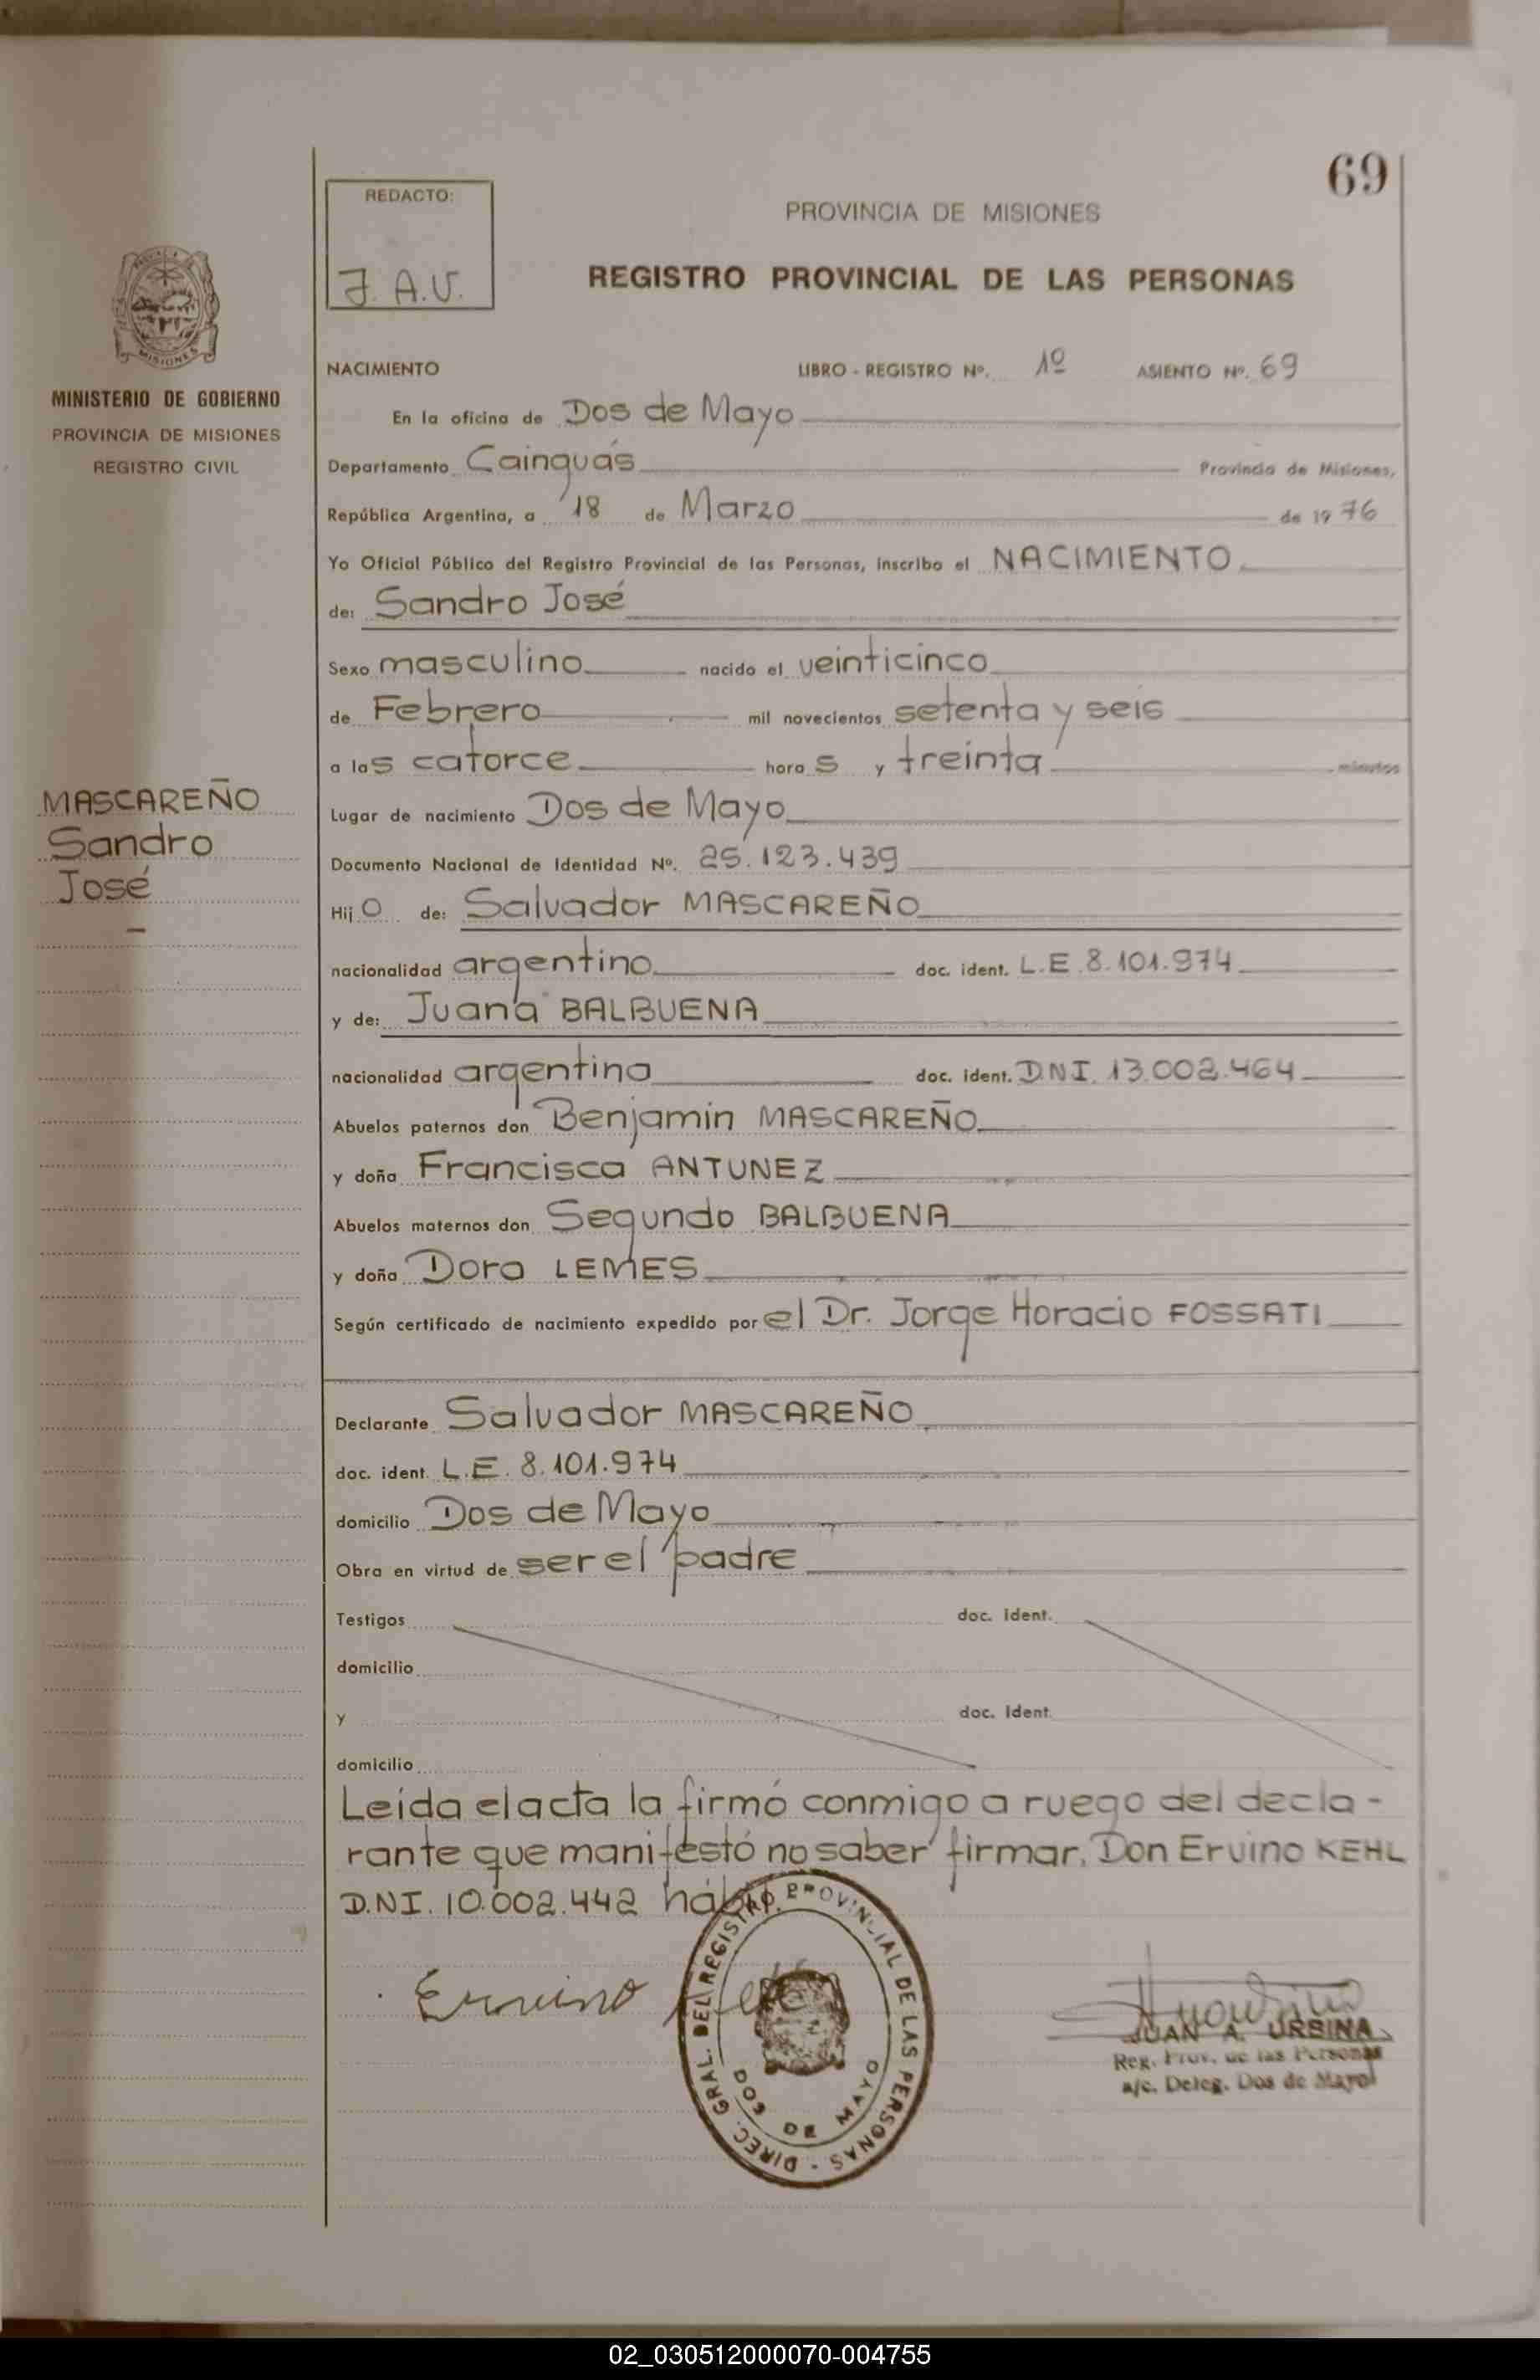 69
REDACTO:
J. A. U.
PROVINCIA DE MISIONES
REGISTRO PROVINCIAL DE LAS PERSONAS
MISIONES
MINISTERIO DE GOBIERNO
PROVINCIA DE MISIONES
REGISTRO CIVIL
MASCAREÑO
Sandro
José
NACIMIENTO LIBRO - REGISTRO Nº. 1º ASIENTO Nº. 69
En la oficina de Dos de Mayo
Departamento Cainguás Provincia de Misiones,
República Argentina, a 18 de Marzo de 1976
Yo Oficial Público del Registro Provincial de las Personas, inscribo el NACIMIENTO
de: Sandro José
Sexo masculino nacido el veinticinco
de Febrero mil novecientos setenta y seis
a las catorce horas y treinta minutos
Lugar de nacimiento Dos de Mayo
Documento Nacional de Identidad Nº. 25.123.439
Hijo de: Salvador MASCAREÑO
nacionalidad argentino doc. ident. L.E. 8.101.974
y de: Juana BALBUENA
nacionalidad argentina doc. ident. D.N.I. 13.002.464
Abuelos paternos don Benjamin MASCAREÑO
y doña Francisca ANTUNEZ
Abuelos maternos don Segundo BALBUENA
y doña Dora LEMES
Según certificado de nacimiento expedido por el Dr. Jorge Horacio FOSSATI
Declarante Salvador MASCAREÑO
doc. ident. L.E. 8.101.974
domicilio Dos de Mayo
Obra en virtud de ser el padre
Testigos doc. ident.
domicilio
y doc. ident.
domicilio
Leída el acta la firmó conmigo a ruego del decla-
rante que manifestó no saber firmar, Don Ervino KEHL
D.N.I. 10.002.442 hábil.
Ervino
DIREC. GRAL. DEL REGISTRO PROVINCIAL DE LAS PERSONAS -
DOS DE MAYO
JUAN A. URBINA
Reg. Prov. de las Personas
a/c. Deleg. Dos de Mayo
02_030512000070-004755